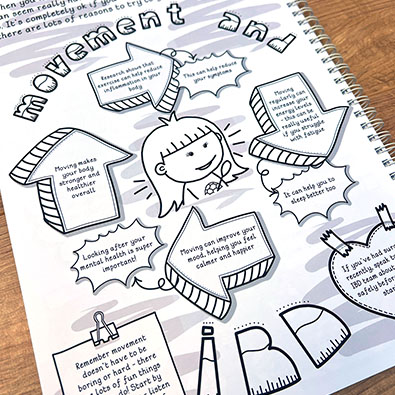 When you
can seem really ha
. It's completely ok if y
there are lots of reasons to try to
movement and
Research shows that
exercise can help reduce
inflammation in your
body
This can help reduce
your symptoms
Moving
regularly can
increase your
energy levels
- this can be
really useful
if you struggle
with fatigue
Moving makes
your body
stronger and
healthier
overall
It can help you to
sleep better too
Looking after your
mental health is super
important!
Moving can improve your
mood, helping you feel
calmer and happier
IBD
If you've had sur
recently, speak t
IBD team about
safely before
star
Remember movement
doesn't have to be
boring or hard - there
are lots of fun things
do! Start by
listen